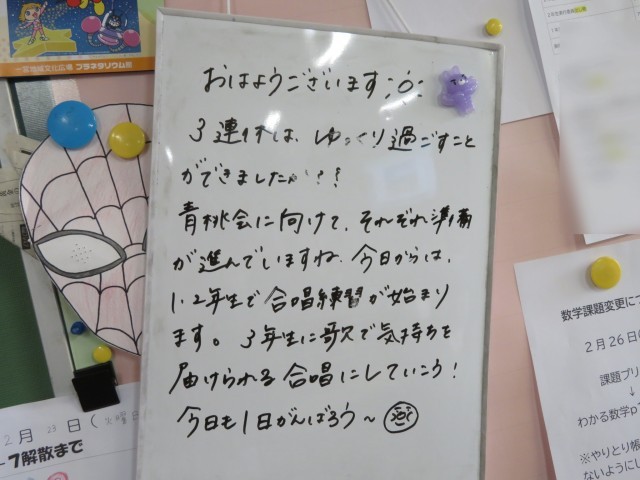 おはようございます
3連休は、ゆっくり過ごすこと
ができましたか??
青桃会に向けて、それぞれ準備
が進んでいますね。今日からは、
1・2年生で合唱練習が始まり
ます。3年生に歌で気持ちを
届けられる合唱にしていこう!
今日も1日がんばろう〜
プラネタリウム
2月 23日(火曜日
-7解散まで
数学課題変更につ
2月26日(
課題プリ
↓
わかる数学p
※やりとり帳
ないようにし